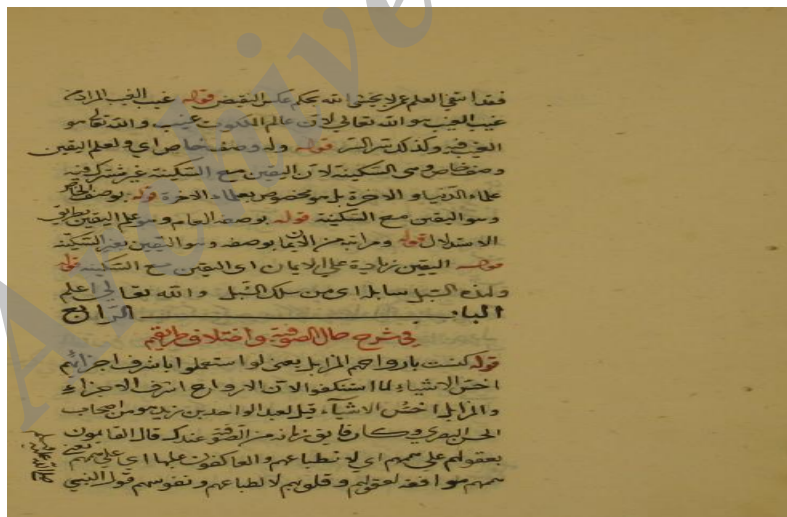 فقد انتفى العلم عمن لا يخشى الله بحكم عكس النقيض قوله غيب الغيب المراد من
غيب الغيب هو الله تعالى لان عالم الملكوت غيب والله تعالى هو
الغيب فيه وكذلك سر السر قوله وله وصف خاص اى ولعلم اليقين
وصف خاص وهى السكينة لان اليقين مع السكينة غير مشترك فيه
علماء الدنيا والاخرة بل هو مخصوص بعلماء الاخرة قوله بوصف الخاص
وهو اليقين مع السكينة قوله بوصفه العام وهو علم اليقين بطريق
الاستدلال قوله ومراتبه من الايمان بوصفه وهو اليقين بغير السكينة
قوله اليقين زيادة على الايمان اى اليقين مع السكينة قوله
ولهذه السبل سابلة اى من سلك السبل والله تعالى اعلم
الباب الرابع
فى شرح حال الصوفية واختلاف طريقهم
قوله كنست بارواحهم المزابل يعنى لو استعملوا باشرف اجزائهم
اخس الاشياء لما استنكفوا لان الارواح اشرف الاجزاء
والمزابل اخس الاشياء قيل لعبد الواحد بن زيد هو من اصحاب
الحسن البصرى وكان فايق زمانه من الصوفية عندك قال القائمون
بعقولهم على همهم اى لا بطباعهم والعاكفون عليها اى على همهم يعنى
همهم موافقة لعقولهم وقلوبهم لا لطباعهم ونفوسهم قول النبى
صلى الله عليه وسلم
Archive